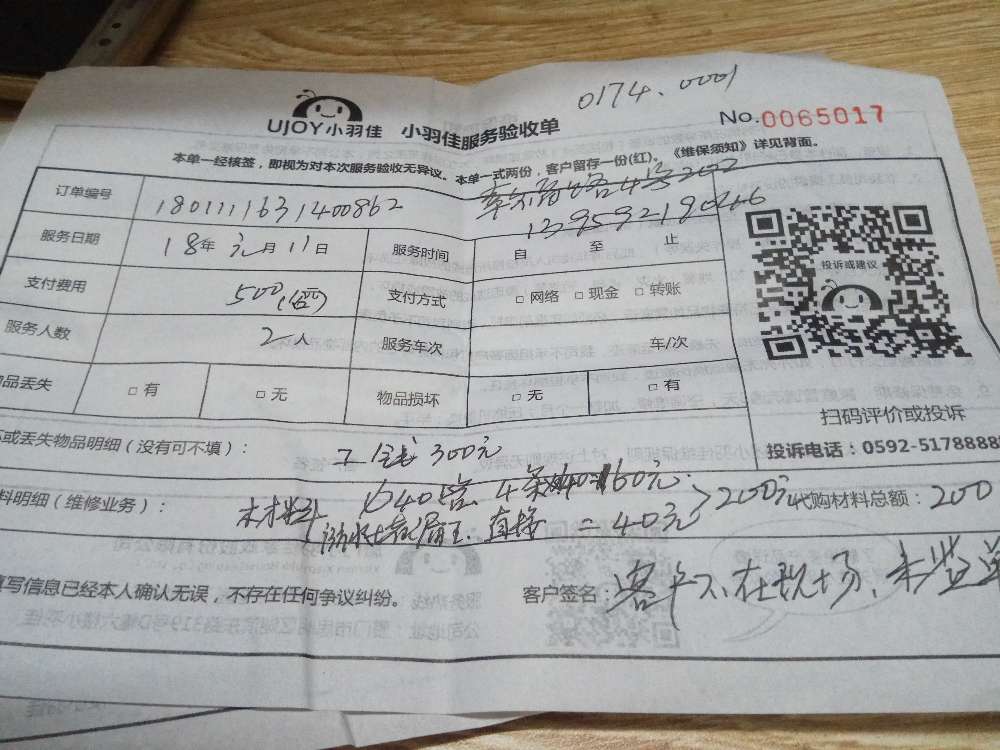 0174.0001
UJOY小羽佳 小羽佳服务验收单 No.0065017
本单一经核签，即视为对本次服务验收无异议。本单一式两份，客户留存一份(红)。《维保须知》详见背面。
订单编号 180111631400862
服务日期 18年元月11日 服务时间 自 至 止
支付费用 500 支付方式 □ 网络 □ 现金 □ 转账
服务人数 2人 服务车次 车/次
品丢失 □ 有 □ 无 物品损坏 □ 无 □ 有
投诉或建议
扫码评价或投诉
投诉电话：0592-5178888
坏或丢失物品明细（没有可不填）： 工钱300元
料明细（维修业务）： 材料 4条 160元 200元 代购材料总额：200
= 40元
真写信息已经本人确认无误，不存在任何争议纠纷。 客户签名：客户不在现场、未